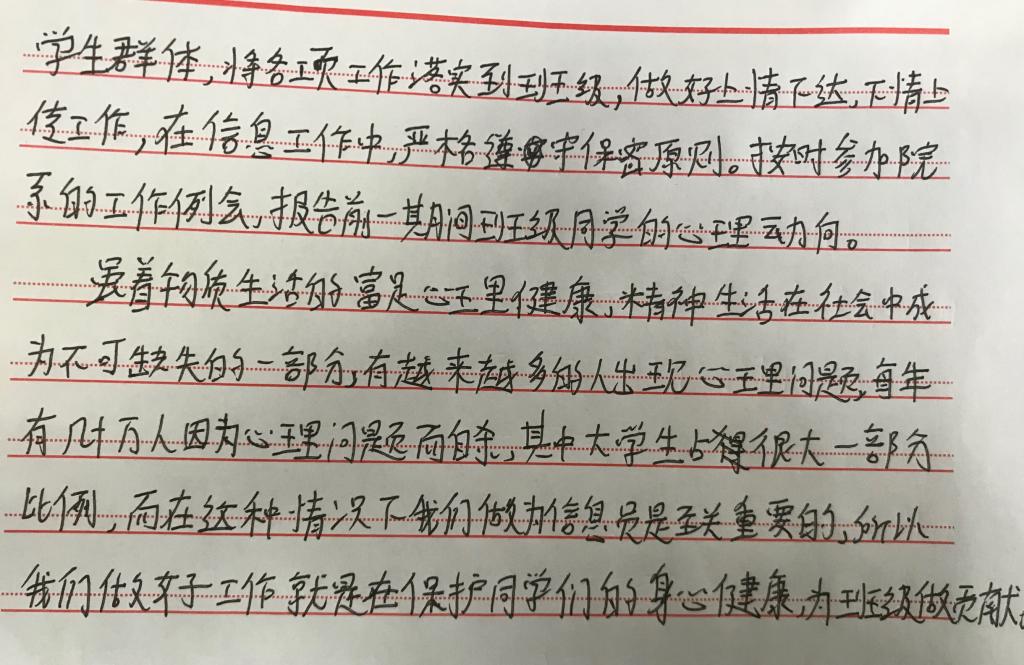 学生群体，将各项工作落实到班级，做好上情下达，下情上
传工作，在信息工作中，严格遵守保密原则。按时参加院
系的工作例会，报告前一期间班级同学的心理动向。
最着物质生活的富足心理健康，精神生活在社会中成
为不可缺失的一部分，有越来越多的人出现心理问题，每年
有几十万人因为心理问题而自杀，其中大学生占得很大一部分
比例，而在这种情况下我们做为信息员是至关重要的，所以
我们做好工作就是在保护同学们的身心健康，为班级做贡献。